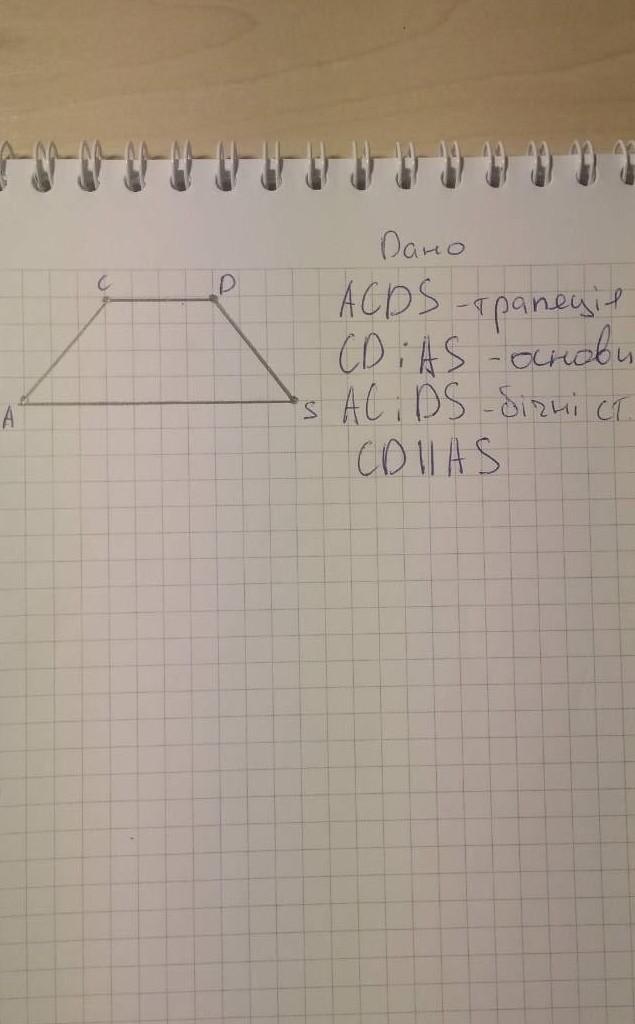 Дано
C D
ACDS - трапеція
CD i AS - основи
A S
AC i DS - бічні ст.
CD || AS